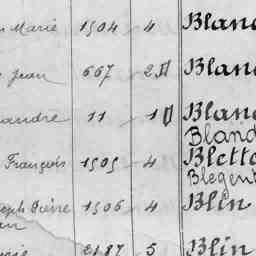 Marie 1504 4 Blanc
Jean 667 2 Blanc
andre 11 1 Blanc
Bland
François 1505 4 Blette
Blegent
seph Pierre 1506 4 Blin
2187 5 Blin